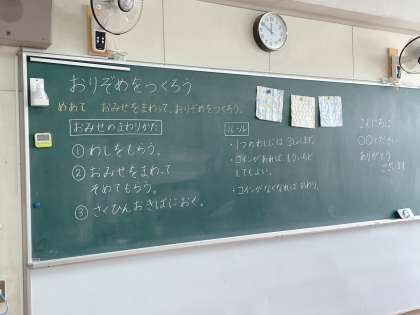 おりぞめをつくろう
めあて おみせをまわって、おりぞめをつくろう。
おみせのまわりかた
① わしをもらう。
② おみせをまわって
そめてもらう。
③ さくひんおきばにおく。
ルール
・1つのわしには 3しょくまで。
・コインがあれば もういちど
してもよい。
・コインがなくなれば おわり。
こんにちは
〇〇ください
ありがとう
ございます